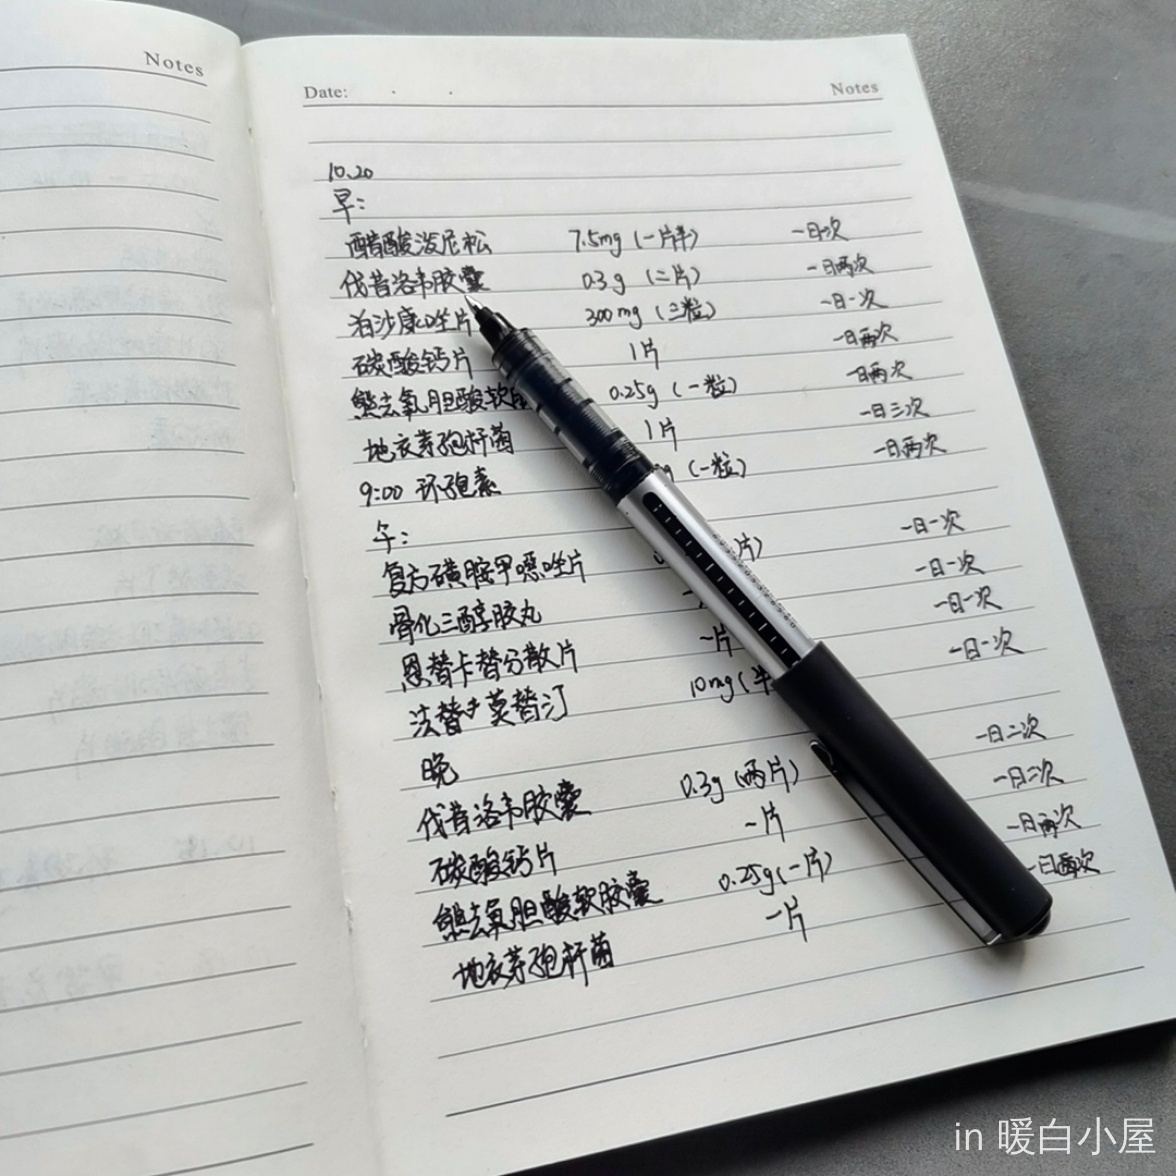 Notes
Date:
Notes
10.20
早：
醋酸泼尼松 7.5mg（一片半） 一日一次
伐昔洛韦胶囊 0.3g（二片） 一日两次
泊沙康唑片 300mg（三粒） 一日一次
碳酸钙片 1片 一日两次
熊去氧胆酸软 0.25g（一粒） 一日两次
地衣芽孢杆菌 1片 一日三次
9:00 环孢素 （一粒） 一日两次
午：
复方磺胺甲噁唑片 片） 一日一次
骨化三醇胶丸 一日一次
恩替卡替分散片 一片 一日一次
法替莫替汀 10mg（半 一日一次
晚
伐昔洛韦胶囊 0.3g（两片） 一日二次
碳酸钙片 一片 一日二次
熊去氧胆酸软胶囊 0.25g（一片） 一日两次
地衣芽孢杆菌 一片 一日两次
in 暖白小屋